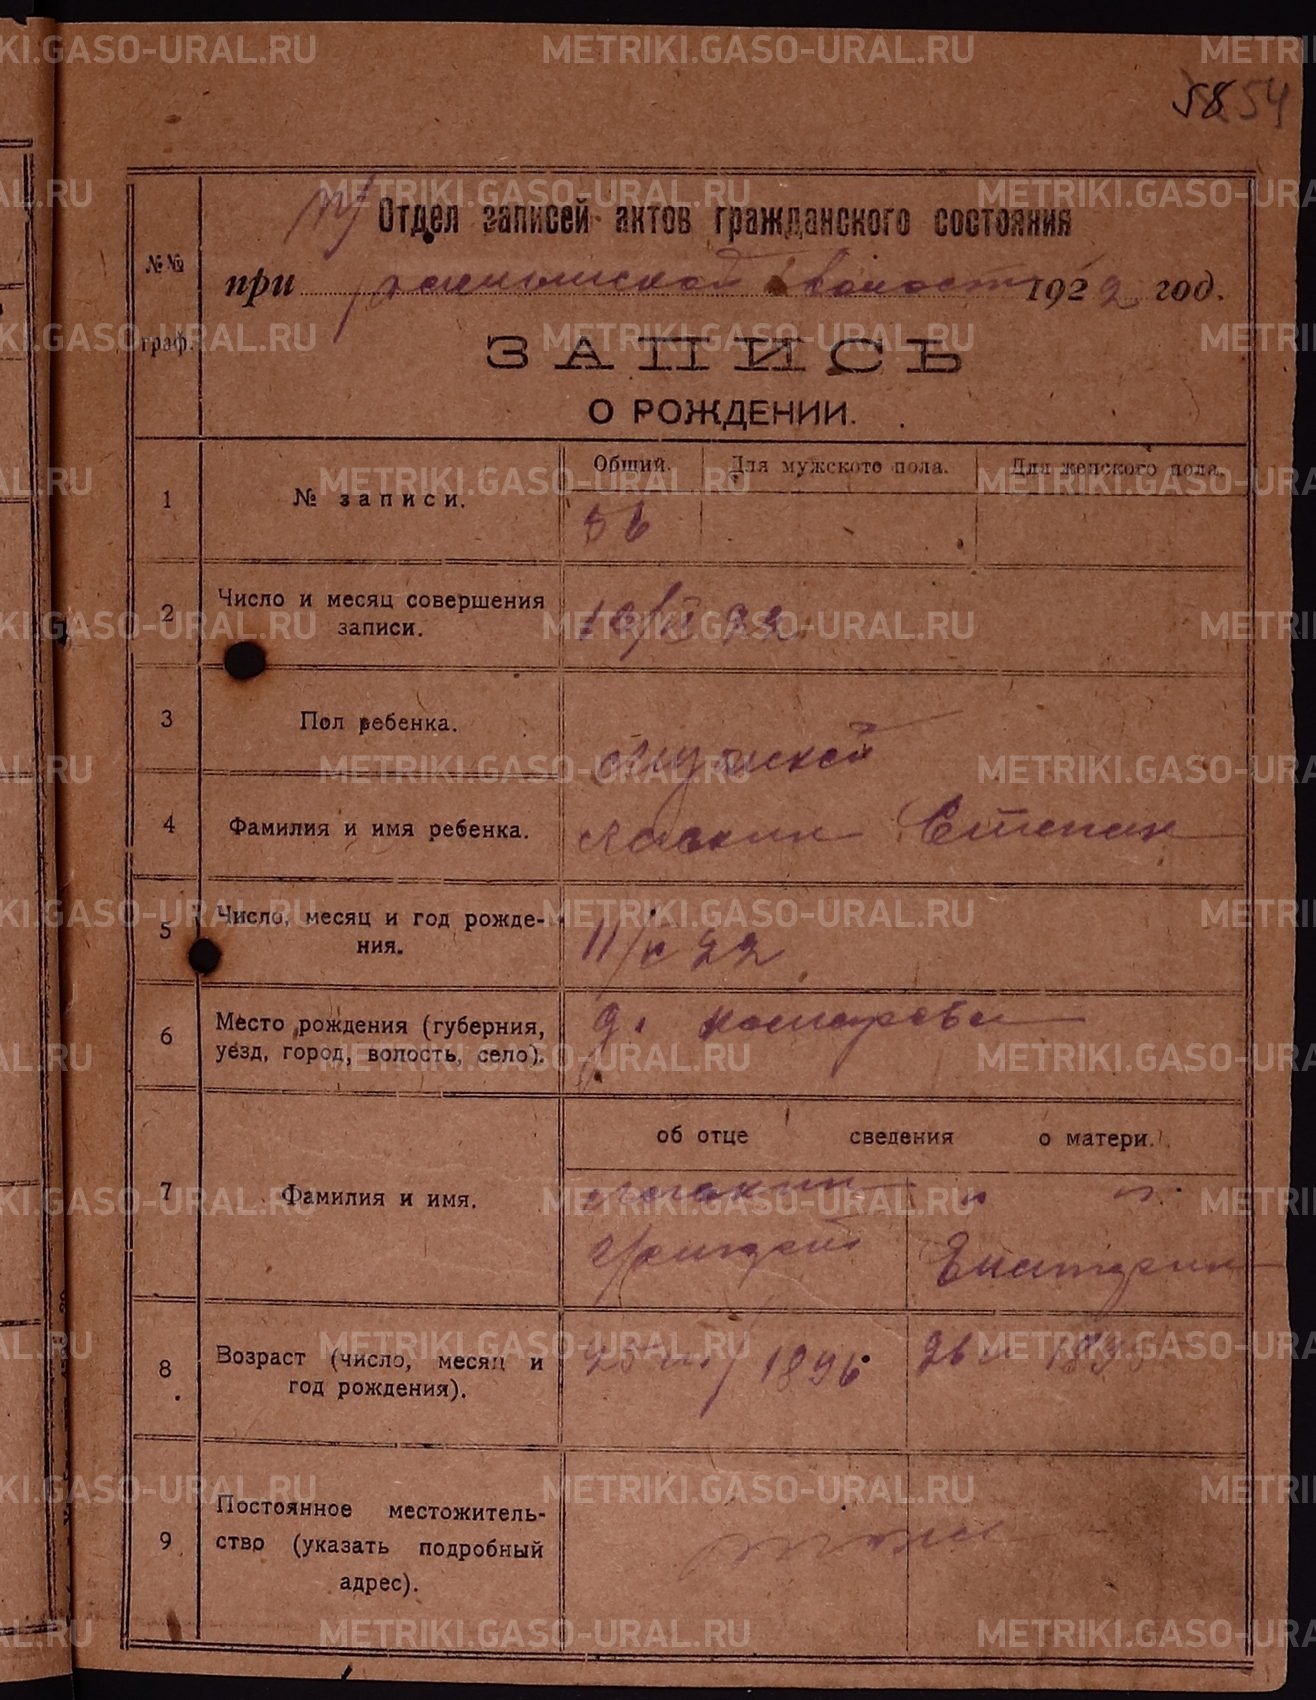 58 54
Отдел записей актов гражданского состояния
№№
граф.
при волост 1922 год.
ЗАПИСЬ
О РОЖДЕНИИ.
1
№ записи.
Общий.
Для мужского пола.
Для женского пола.
56
2
Число и месяц совершения
записи.
22
3
Пол ребенка.
Мужской
4
Фамилия и имя ребенка.
Степан
5
Число, месяц и год рожде-
ния.
11/ 22
6
Место рождения (губерния,
уезд, город, волость, село).
д.
об отце сведения о матери.
7
Фамилия и имя.
Екатерин
8
Возраст (число, месяц и
год рождения).
25 1896
26
9
Постоянное местожитель-
ство (указать подробный
адрес).
METRIKI.GASO-URAL.RU